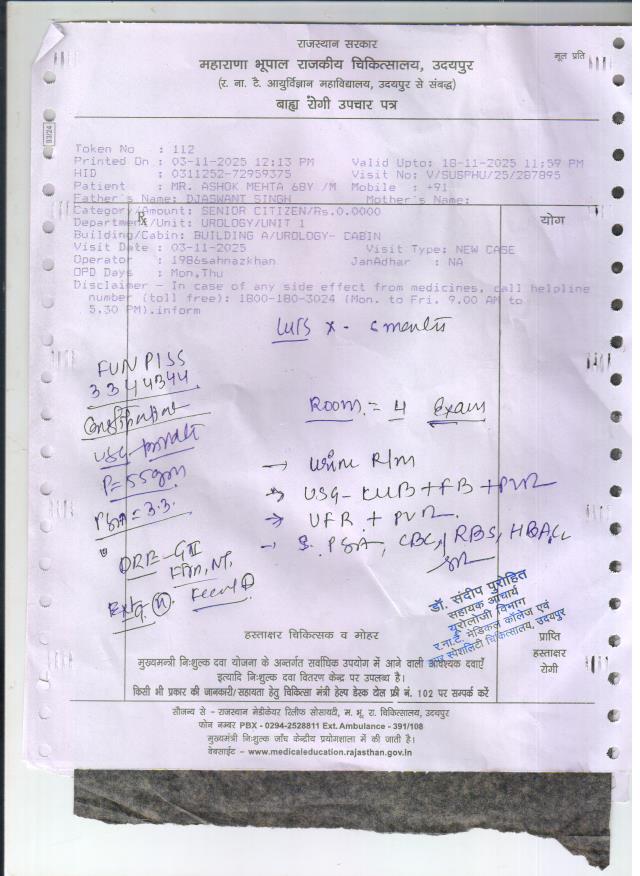 राजस्थान सरकार
महाराणा भूपाल राजकीय चिकित्सालय, उदयपुर
मूल प्रति
(र. ना. टै. आयुर्विज्ञान महाविद्यालय, उदयपुर से संबद्ध)
बाह्य रोगी उपचार पत्र
93/24
Token No : 112
Printed On : 03-11-2025 12:13 PM Valid Upto: 18-11-2025 11:59 PM
HID : 0311252-72959375 Visit No: V/SUSPHU/25/287895
Patient : MR. ASHOK MEHTA 68Y /M Mobile : +91
Father's Name: DJASWANT SINGH Mother's Name:
Category/Amount: SENIOR CITIZEN/Rs.0.0000
योग
Department/Unit: UROLOGY/UNIT 1
Building/Cabin: BUILDING A/UROLOGY- CABIN
Visit Date : 03-11-2025 Visit Type: NEW CASE
Operator : 1986sahnazkhan JanAadhar : NA
OPD Days : Mon,Thu
Disclaimer - In case of any side effect from medicines, call helpline
number (toll free): 1800-180-3024 (Mon. to Fri. 9.00 AM to
5.30 PM).inform
LUTS x - 6 months
FUN PISS
3 3 4 4 3 4 4
Constipation
USG
P = 55gm
PSA = 3.3
DRE - GII
Firm, NT,
Room = 4 Exam
→ Urine R/M
→ USG - KUB + FB + PVR
→ UFR + PVR
→ S. PSA, CBC, RBS, HBA1c
डॉ. संदीप पुरोहित
सहायक आचार्य
यूरोलॉजी विभाग
र.ना.टै. मेडिकल कॉलेज एवं
सुपर स्पेशलिटी चिकित्सालय, उदयपुर
हस्ताक्षर चिकित्सक व मोहर
प्राप्ति
हस्ताक्षर
रोगी
मुख्यमन्त्री निःशुल्क दवा योजना के अन्तर्गत सर्वाधिक उपयोग में आने वाली आवश्यक दवाएँ
इत्यादि निःशुल्क दवा वितरण केन्द्र पर उपलब्ध है।
किसी भी प्रकार की जानकारी/सहायता हेतु चिकित्सा मंत्री हेल्प डेस्क टोल फ्री नं. 102 पर सम्पर्क करें
सौजन्य से - राजस्थान मेडीकेयर रिलीफ सोसायटी, म. भू. रा. चिकित्सालय, उदयपुर
फोन नम्बर PBX - 0294-2528811 Ext. Ambulance - 391/108
मुख्यमंत्री निःशुल्क जाँच केन्द्रीय प्रयोगशाला में की जाती है।
वेबसाईट - www.medicaleducation.rajasthan.gov.in